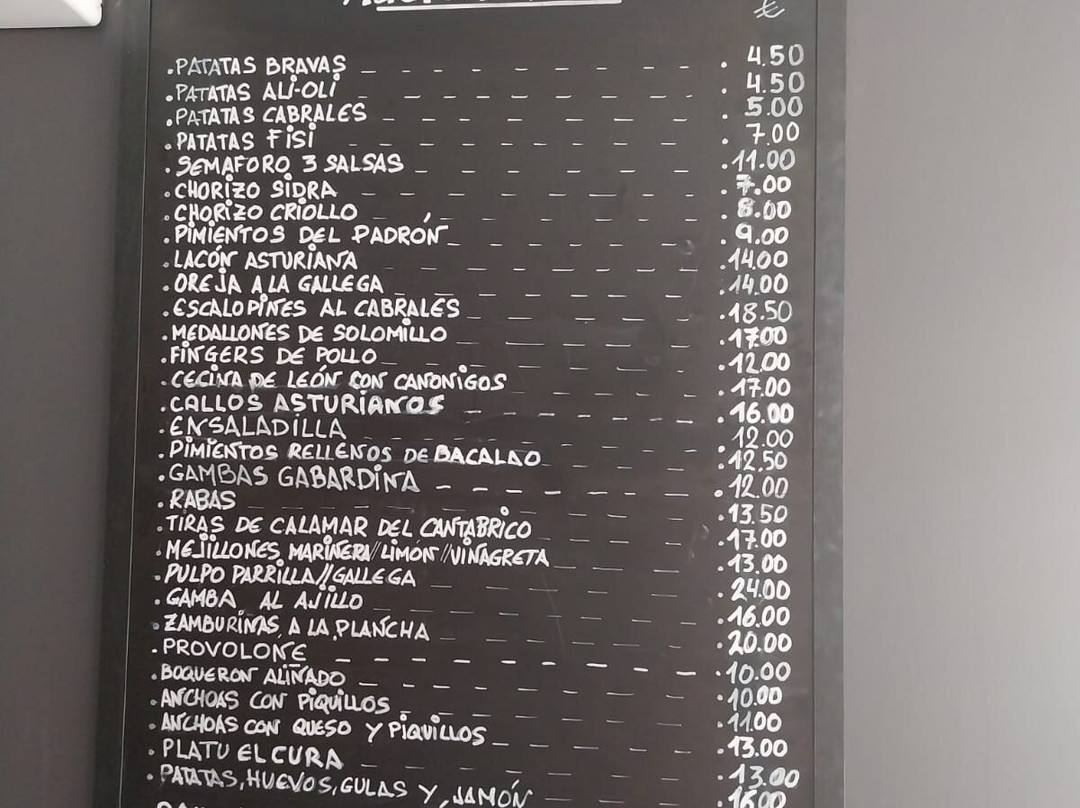 €
.PATATAS BRAVAS _ _ _ _ _ _ _ _ . 4.50
.PATATAS ALI-OLI _ _ _ _ _ _ _ _ . 4.50
.PATATAS CABRALES _ _ _ _ _ _ _ _ . 5.00
.PATATAS FISI _ _ _ _ _ _ _ _ . 7.00
.SEMAFORO 3 SALSAS _ _ _ _ _ _ _ .11.00
.CHORIZO SIDRA _ _ _ _ _ _ _ . 7.00
.CHORIZO CRIOLLO _ _ _ _ _ _ _ . 8.00
.PIMIENTOS DEL PADRÓN _ _ _ _ _ _ . 9.00
.LACÓN ASTURIANA _ _ _ _ _ _ _ .14.00
.OREJA A LA GALLEGA _ _ _ _ _ _ _ .14.00
.ESCALOPINES AL CABRALES _ _ _ _ _ .18.50
.MEDALLONES DE SOLOMILLO _ _ _ _ _ .17.00
.FINGERS DE POLLO _ _ _ _ _ _ _ .12.00
.CECINA DE LEÓN CON CANONIGOS _ _ _ _ .17.00
.CALLOS ASTURIANOS _ _ _ _ _ _ _ .16.00
.ENSALADILLA _ _ _ _ _ _ _ .12.00
.PIMIENTOS RELLENOS DE BACALAO _ _ _ _ .12.50
.GAMBAS GABARDINA _ _ _ _ _ _ _ .12.00
.RABAS _ _ _ _ _ _ _ _ .13.50
.TIRAS DE CALAMAR DEL CANTABRICO _ _ _ .17.00
.MEJILLONES MARINERA//LIMÓN//VINAGRETA _ _ _ .13.00
.PULPO PARRILLA//GALLEGA _ _ _ _ _ _ .24.00
.GAMBA AL AJILLO _ _ _ _ _ _ _ .16.00
.ZAMBURIÑAS A LA PLANCHA _ _ _ _ _ _ .20.00
.PROVOLONE _ _ _ _ _ _ _ _ .10.00
.BOQUERON ALIÑADO _ _ _ _ _ _ _ .10.00
.ANCHOAS CON PIQUILLOS _ _ _ _ _ _ _ .11.00
.ANCHOAS CON QUESO Y PIQUILLOS _ _ _ _ _ .13.00
.PLATU EL CURA _ _ _ _ _ _ _ _ .13.00
.PATATAS, HUEVOS, GULAS Y JAMÓN _ _ _ _ .16.00